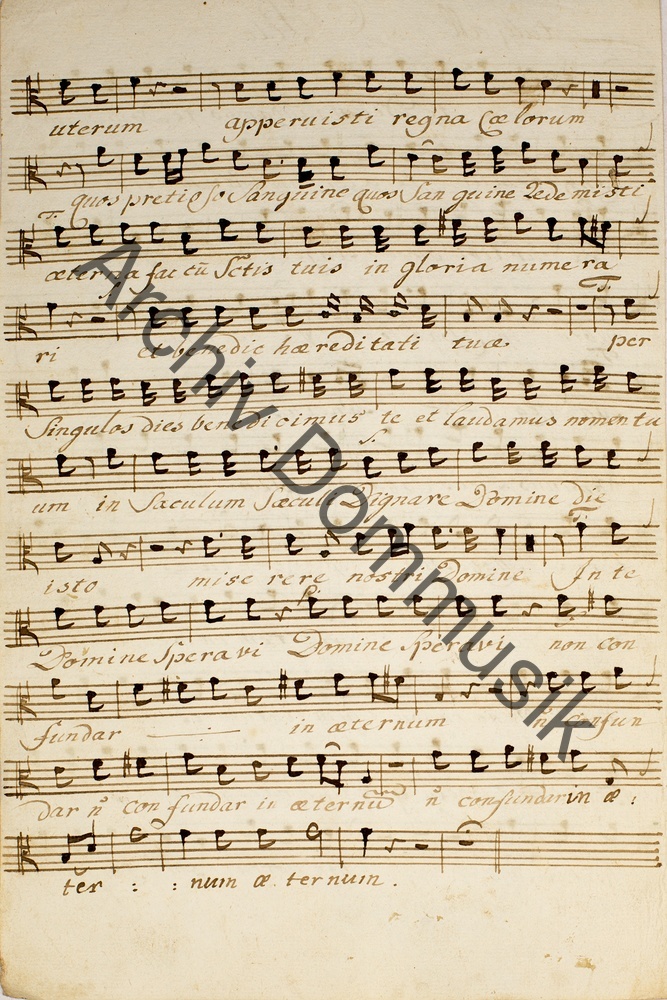 uterum apperuisti regna Cœlorum
quos pretioso Sanguine quos San guine Redemisti
æterna fac cũ Sctis tuis in gloria numera
ri et benedic hæreditati tuæ per
Singulos dies benedicimus te et laudamus nomen tu
um in Sæculum Sæculi Dignare Domine die
isto misere rere nostri Domine In te
Domine Speravi Domine Speravi non con
fundar in æternum ñ confun
dar ñ con fundar in æternũ ñ confundar in æ:
ter : : num æ ternum.
Archiv Dommusik